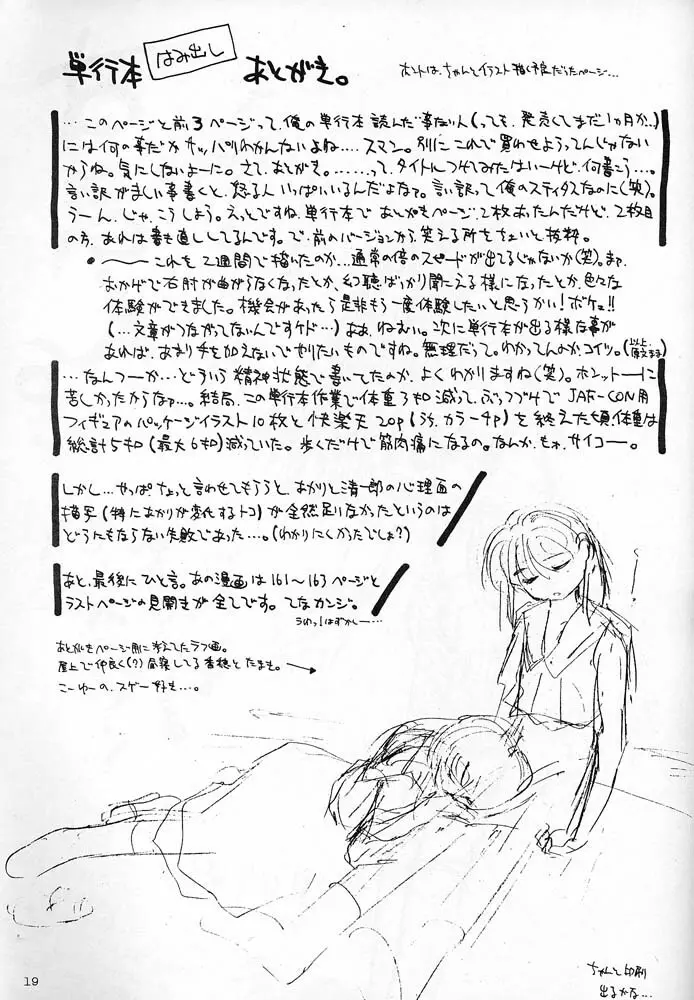 単行本 はみ出し あとがき。
ホントは、ちゃんとイラスト描く予定だったページ…
…このページと前3ページって、俺の単行本読んだ事ない人(っても、発売してまだ1ヵ月か。)
には何の事だかサッパリわかんないよね…。スマン。別にこれで買わせようってんじゃない
からね。気にしないよーに。さて、あとがき。……って、タイトルつけてみたはいーけど、何書こう…。
言い訳がましい事書くと、怒る人いっぱいいるんだよなァ。言い訳って俺のスティタスなのに(笑)。
うーん、じゃ、こうしよう。えっとですね、単行本であとがきページ、2枚あったんだけど、2枚目
の方、あれは書き直ししてるんです。で、前のバージョンから、笑える所をちょいと抜粋。
●〜これを2週間で描いたのか…通常の倍のスピードが出てるじゃないか(笑)。まァ、
おかげで右肘が曲がらなくなったとか、幻聴ばっかり聞こえる様になったとか、色々な
体験ができました。機会があったら是非もう一度体験したいと思うかい!ボケェ!!
(…文章がつながってないんですケド…)ああ、ねむい。次に単行本が出る様な事が
あれば、あまり手を加えないでやりたいものですね。無理だって。わかってんのかコイツ。(原文まま)
…なんつーか…どういう精神状態で書いてたのか、よくわかりますね(笑)。ホンットーに
苦しかったからなァ…。結局、この単行本作業で体重3キロ減って、ぶっつづけで JAF-CON用
フィギュアのパッケージイラスト10枚と快楽天20p(うち、カラー4p)を終えた頃、体重は
総計5キロ(最大6キロ)減っていた。歩くだけで筋肉痛になるの。なんか、もォ、サイコー。
しかし…やっぱちょっと言わせてもらうと、あかりと清一郎の心理面の
描写(特にあかりが変化するトコ)が全然足りなかったというのは
どうにもならない失敗であった…。(わかりにくかったでしょ?)
あと、最後にひと言。あの漫画は161〜163ページと
ラストページの見開きが全てです。てなカンジ。
うわっ!はずかしー…
あとがきページ用に考えてたラフ画。
屋上で仲良く(?)昼寝してる香穂とたまき。
こーゆーの、スゲー好き…。
ちゃんと印刷
出るかな…
19